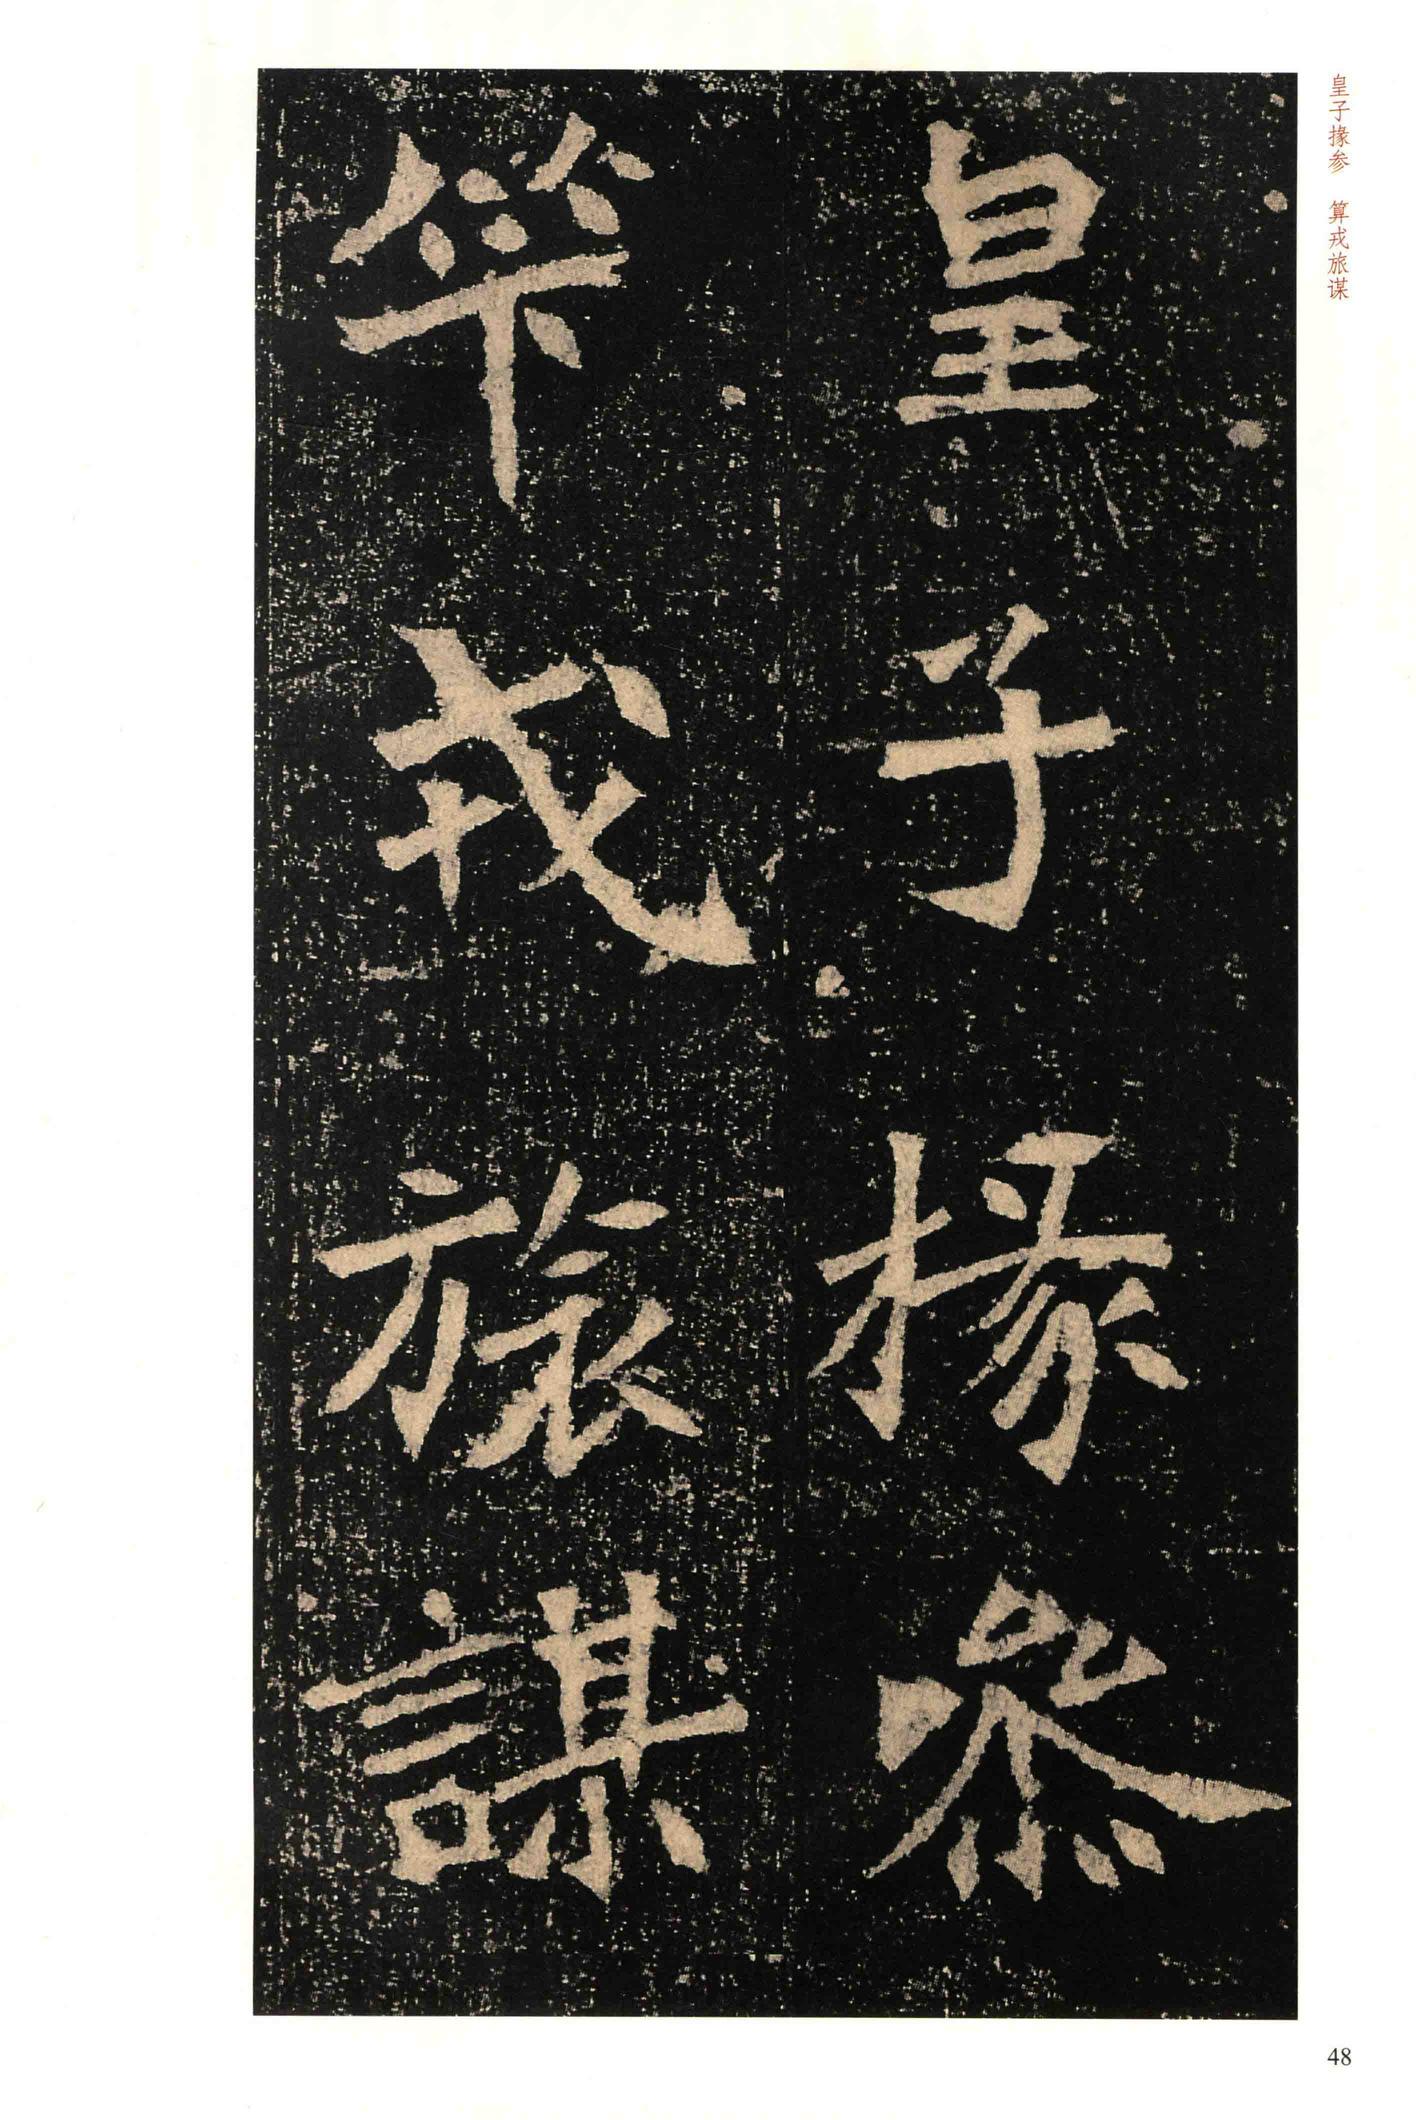 皇子掾參
笇戎旅謀
皇子掾参 算戎旅谋
48